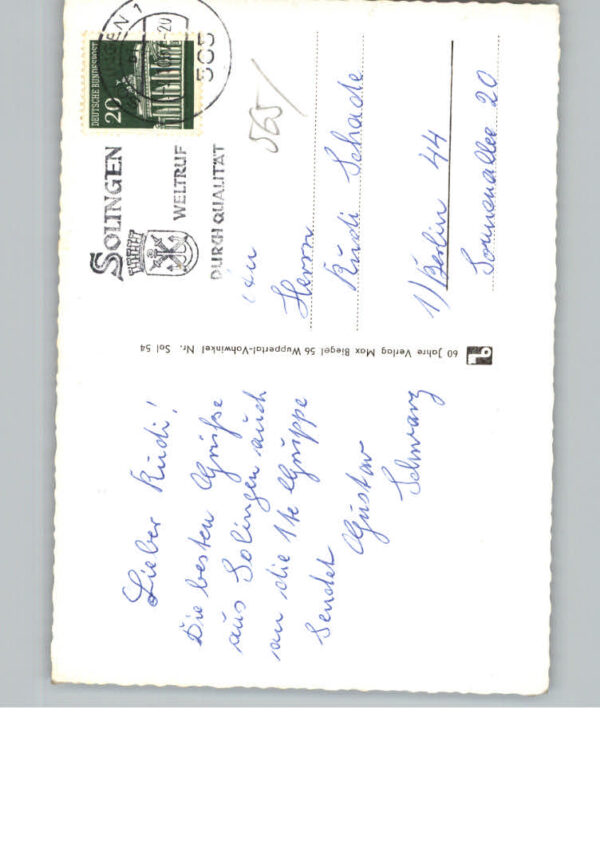 Lieber Rudi!
Die besten Grüße
aus Solingen auch
an die 1te Gruppe
sendet
Gustav
Schwarz
60 Jahre Verlag Max Biegel 56 Wuppertal-Vohwinkel Nr. Sol 54
SOLINGEN
WELTRUF
DURCH QUALITÄT
DEUTSCHE BUNDESPOST
20
565
565/
Herrn
Rudi Schade
1) Berlin 44
Sonnenallee 20